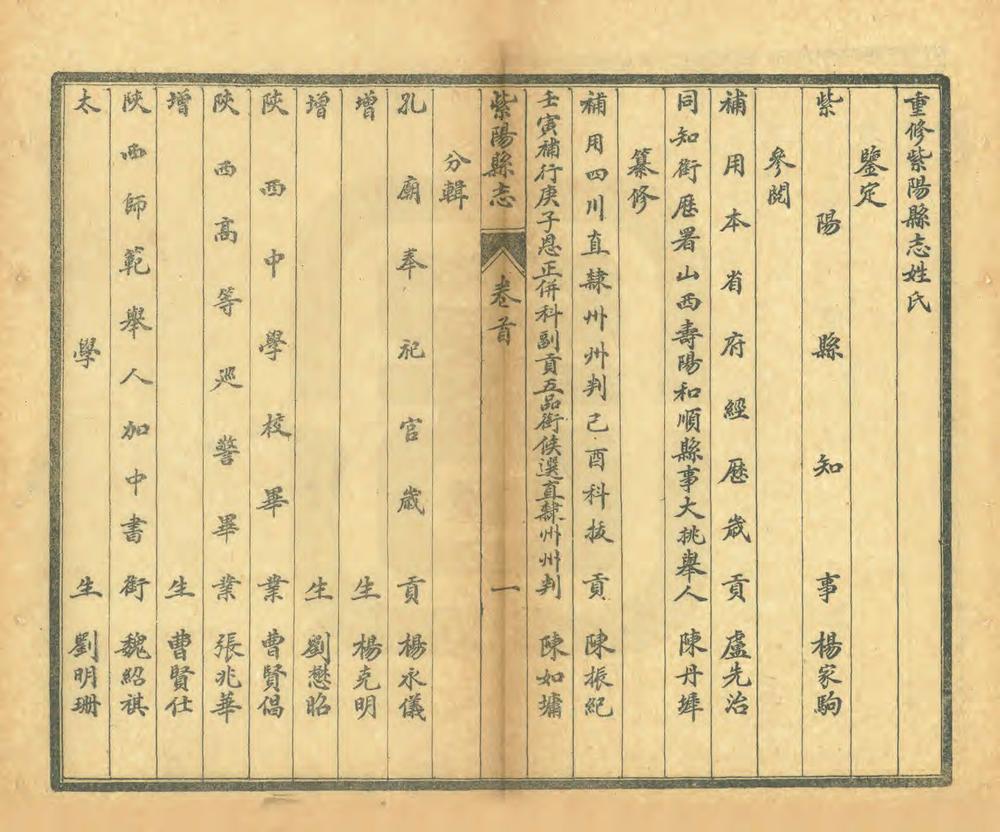 重修紫陽縣志姓氏
鑒定
紫陽縣知事楊家駒
參閱
補用本省府經歷歲貢盧先治
同知銜歷署山西壽陽和順縣事大挑舉人陳丹墀
纂修
補用四川直隸州州判己酉科拔貢陳振紀
壬寅補行庚子恩正併科副貢五品銜候選直隸州州判陳如墉
紫陽縣志 卷首 一
分輯
孔廟奉祀官歲貢楊永儀
增生楊克明
增生劉懋昭
陝西中學校畢業曹賢倡
陝西高等巡警畢業張兆華
增生曹賢仕
陝西師範舉人加中書銜魏紹祺
太學生劉明珊